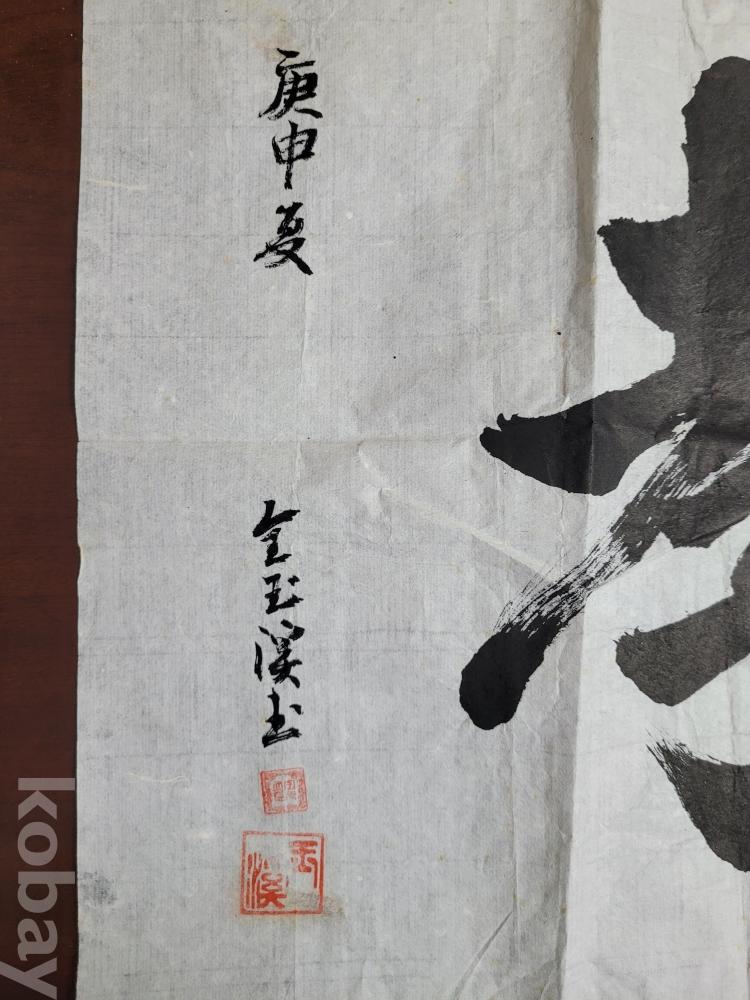 庚申夏
金玉溪书
玉溪
kobay